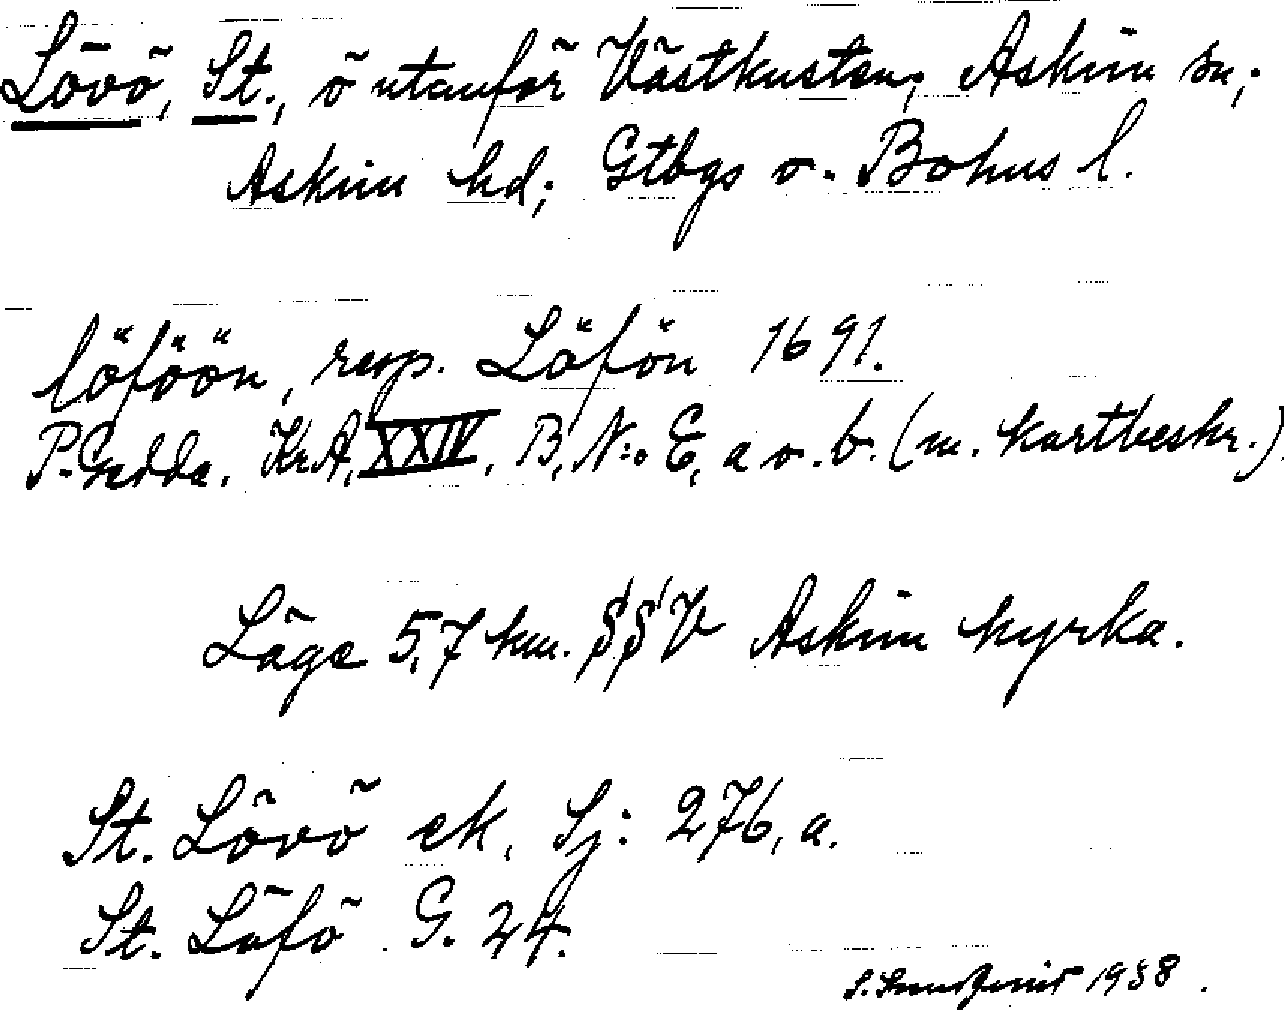 Lövö, St., ö utanför Västkusten; Askim sn;
Askim hd; Gtbgs o. Bohus l.
löföön, resp. Löfön 1691.
P. Gedda. KrA, XXIV, B, N:o E, a o. b. (m. kartbeskr.).
Läge 5,7 km. SSV Askim kyrka.
St. Lövö ek, Sj: 276, a.
St. Löfö G. 24.
S. 1938.